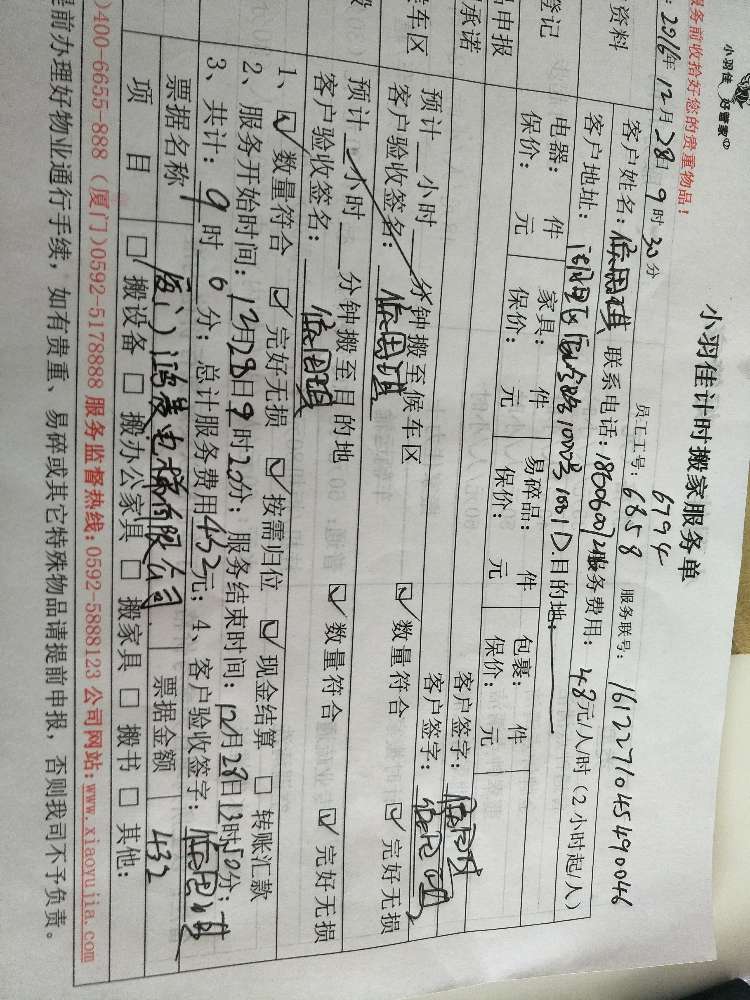 小羽佳 好管家
小羽佳计时搬家服务单
服务前收拾好您的贵重物品！
员工工号：6794 6858 服务联号：1612271045490046
2016年12月28日9时30分
客户姓名： 联系电话： 服务费用：48元/人/时（2小时起/人）
资料
客户地址： 目的地：
登记
电器： 件 家具： 件 易碎品： 件 包裹： 件
保价： 元 保价： 元 保价： 元 保价： 元
申报
客户签字：
承诺
客户签字：
候车区
预计 小时 分钟搬至候车区 数量符合 完好无损
客户验收签名：
预计 小时 分钟搬至目的地 数量符合 完好无损
客户验收签名：
1、 数量符合 完好无损 按需归位 现金结算 转账汇款
2、服务开始时间：12月28日9时20分；服务结束时间：12月28日13时50分；
3、共计：9时6分；总计服务费用432元；4、客户验收签字：
票据名称 厦门鸿菱电梯有限公司 票据金额 432
项目 搬设备 搬办公家具 搬家具 搬书 其他：
)400-6655-888（厦门）0592-5178888 服务监督热线：0592-5888123 公司网站：www.xiaoyujia.com
提前办理好物业通行手续，如有贵重、易碎或其它特殊物品请提前申报，否则我司不予负责。